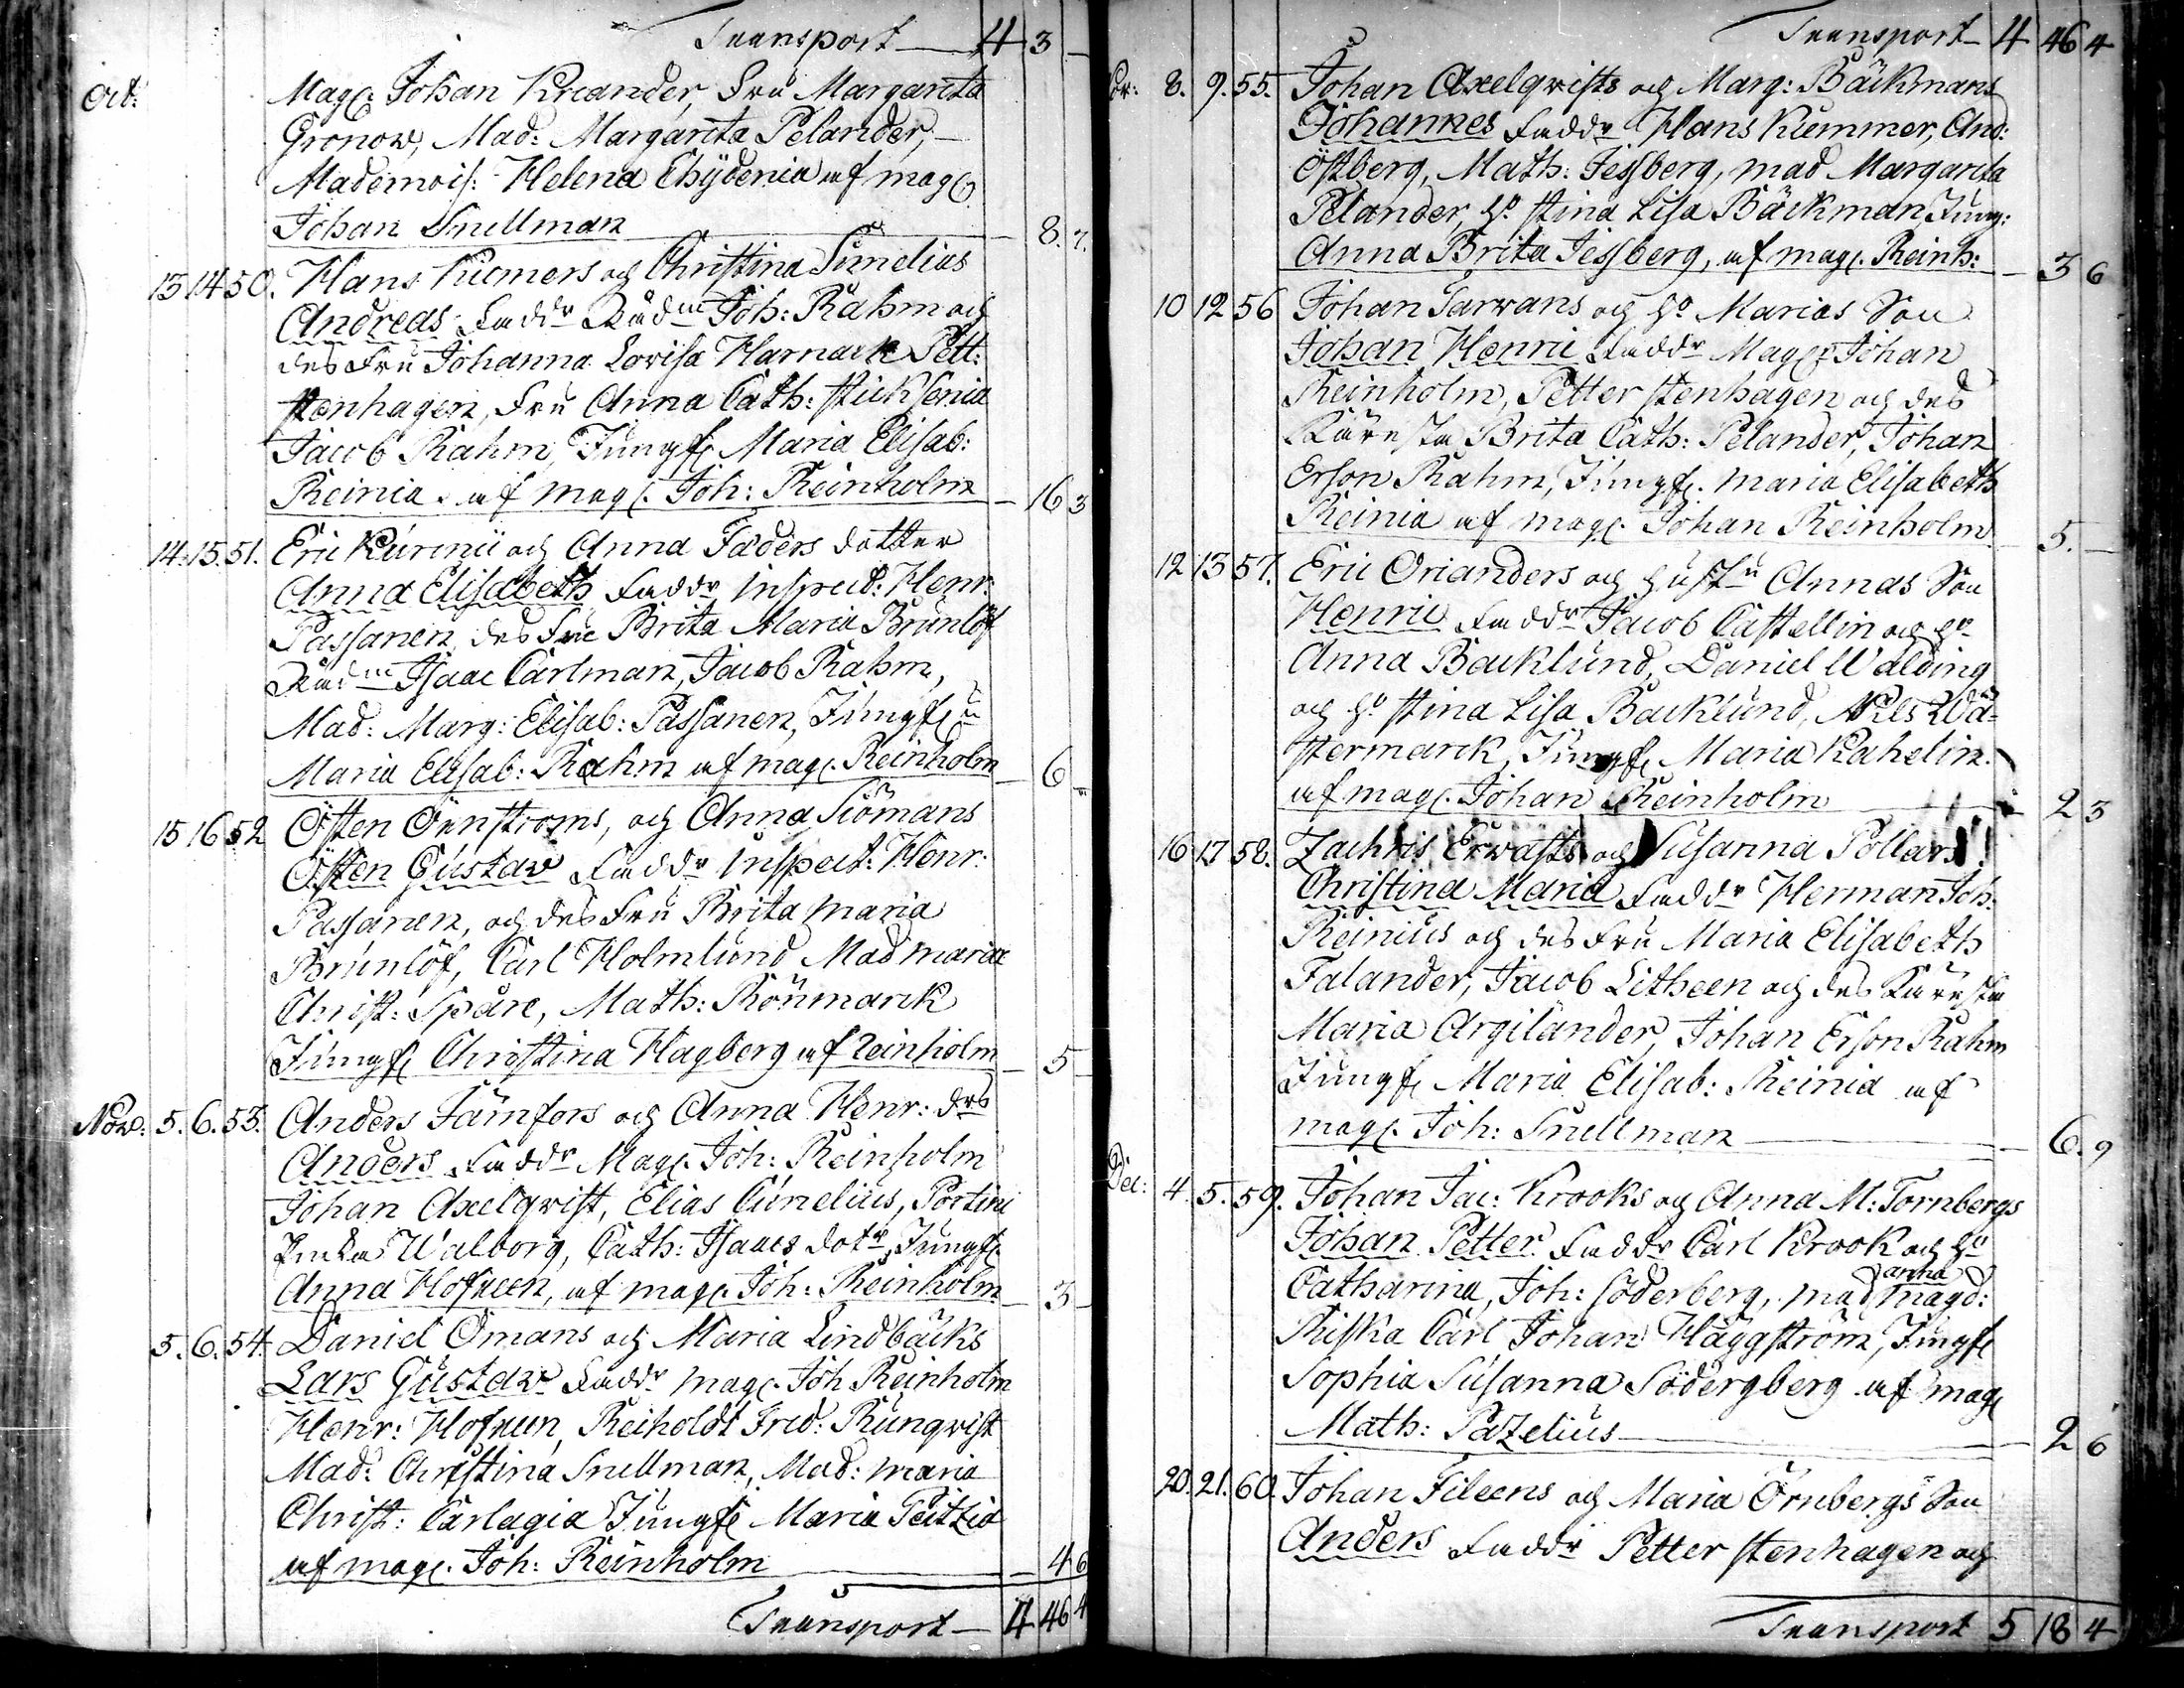 Transport 4 3 –
Oct: Mag. Johan Kreander, Fru Margareta
Gronow, Mad: Margareta Pelander, –
Mademois: Helena Chÿdenia af mag.
Johan Snellman 8. 7.
13 14 50. Hans Kumers och Christina Simelius
Andreas Faddr Rådm Joh: Rahm och
des Fru Johanna Lovisa Harnack Pett:
Stenhagen, Fru Anna Cath:
Jacob Rahm, Jungf. Maria Elisab:
Reinia. af mag. Joh: Reinholm 16 3
14. 15. 51. Eric och Anna Fäders dotter
Anna Elisabeth Faddr Inspect: Henr:
Passanen, des Fru Brita Maria Brunlöf
Rådm Isaac Carlman, Jacob Rahm,
Mad: Marg: Elisab: Passanen, Jungf.
Maria Elisab: Rahm af mag. Reinholm 6 –
15 16 52 Östen Örnströms, och Anna Siömans
Östen Gustav Faddr Inspect: Henr:
Passanen, och des Fru Brita Maria
Brunlöf, Carl Holmlund Mad Maria
Christ: Spåre, Math: Rönmarck
Jungf. Christina Hagberg af Reinholm 5 –
Nov: 5. 6. 53. Anders Jämfors och Anna Henr: drs
Anders Faddr Mag. Joh: Reinholm
Johan Axelqvist, Elias Cunelius, Portin
Enka Walborg, Cath: Isaacs dotr, Jungf.
Anna Hofreen, af mag. Joh: Reinholm 3 –
5. 6. 54. Daniel Ömans och Maria Lindbäcks
Lars Gustav Faddr mag. Joh Reinholm
Henr: Hofreen, Reiholdt Fred: Runqvist
Mad: Christina Snellman, Mad: Maria
Christ: Carlagia Jungf. Maria Teitzia
af mag. Joh: Reinholm 4 6
Transport – 4 46 4
Transport – 4 46 4
8. 9. 55. Johan Axelqvists och Marg: Bäckmans
Johannes Faddr Hans Kummer, And:
Östberg, Math: Jessberg, mad Margareta
Pelander, ho Stina Lisa Bäckman, Jung:
Anna Brita Jessberg, af mag. Reinh: 3 6
10 12 56 Johan Sarvans och ho Marias Son
Johan Henric Faddr Mag. Johan
Reinholm, Petter Stenhagen och des
Käresta Brita Cath: Pelander, Johan
Erson Rahm, Jungf. Maria Elisabeth
Reinia af mag. Johan Reinholm 5. –
12 13 57. Eric Orianders och hustru Annas Son
Henric Faddr Jacob Castellin och ho
Anna Backlund, Daniel Walding
och ho Stina Lisa Backlund, Nils Wä-
stermarck, Jungf. Maria Kahelin
af mag. Johan Reinholm 2 3
16 17 58. Zachris Ervasts och Susanna Pollars
Christina Maria Faddr Herman Joh:
Reinius och des Fru Maria Elisabeth
Falander, Jacob Litheen och des Käresta
Maria Argilander, Johan Erson Rahm
Jungf. Maria Elisab: Reinia af
mag. Joh: Snellman 6. 9
Dec: 4. 5. 59. Johan Jac: Krooks och Anna M: Tornbergs
Johan Petter Faddr Carl Krook och ho
Catharina, Joh: Söderberg, mad anna Magd:
Riska Carl Johan Häggström, Jungf.
Sophia Susanna Södergberg af mag.
Math: Pazelius 2 6
20. 21. 60. Johan Fileens och Maria Örnbergs Son
Anders Faddr Petter Stenhagen och
Transport 5 18 4